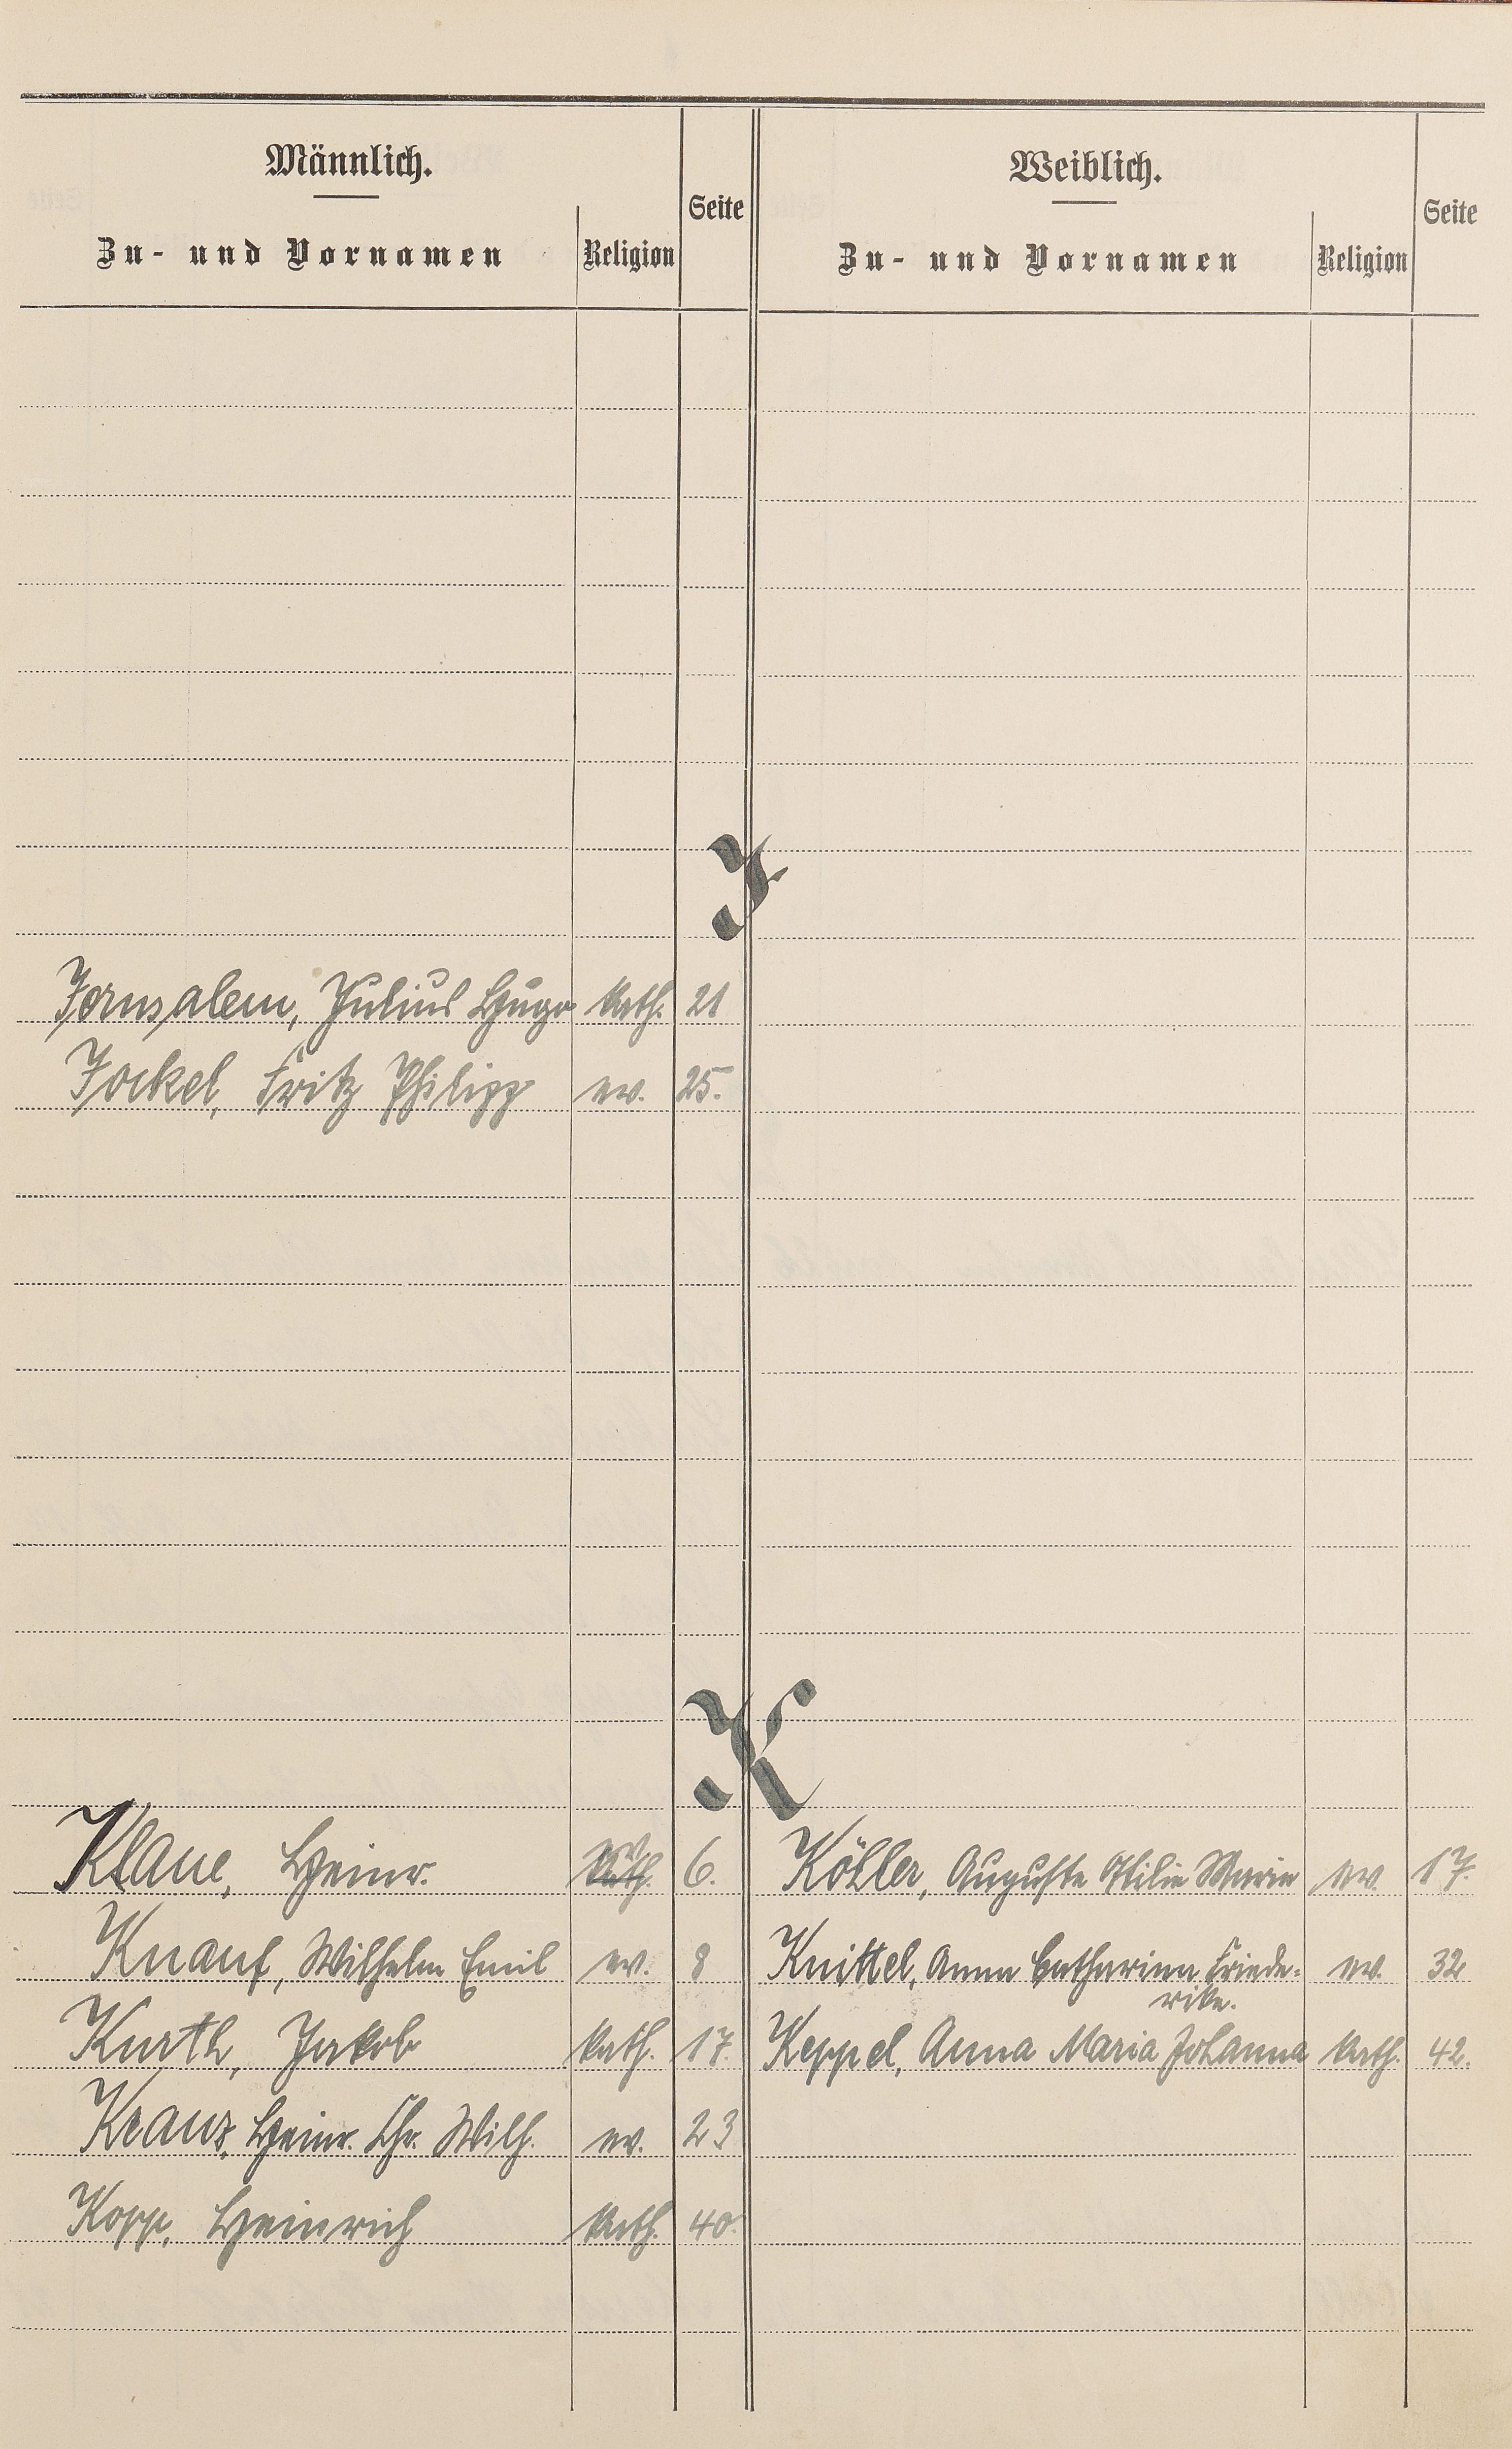 Männlich.
Zu- und Vornamen Religion Seite
Weiblich.
Zu- und Vornamen Religion Seite
J
Jerusalem, Julius Hugo kath. 21
Jockel, Fritz Philipp ev. 25.
K
Klaue, Heinr. ev. kath. 6.
Köhler, Auguste Otilie Marie ev. 17.
Knauf, Wilhelm Emil ev. 8
Knittel, Anna Catharina Friede-
rike. ev. 32
Kurth, Jakob kath. 17.
Keppel, Anna Maria Johanna kath. 42.
Kraus, Heinr. Chr. Wilh. ev. 23
Kopp, Heinrich kath. 40.